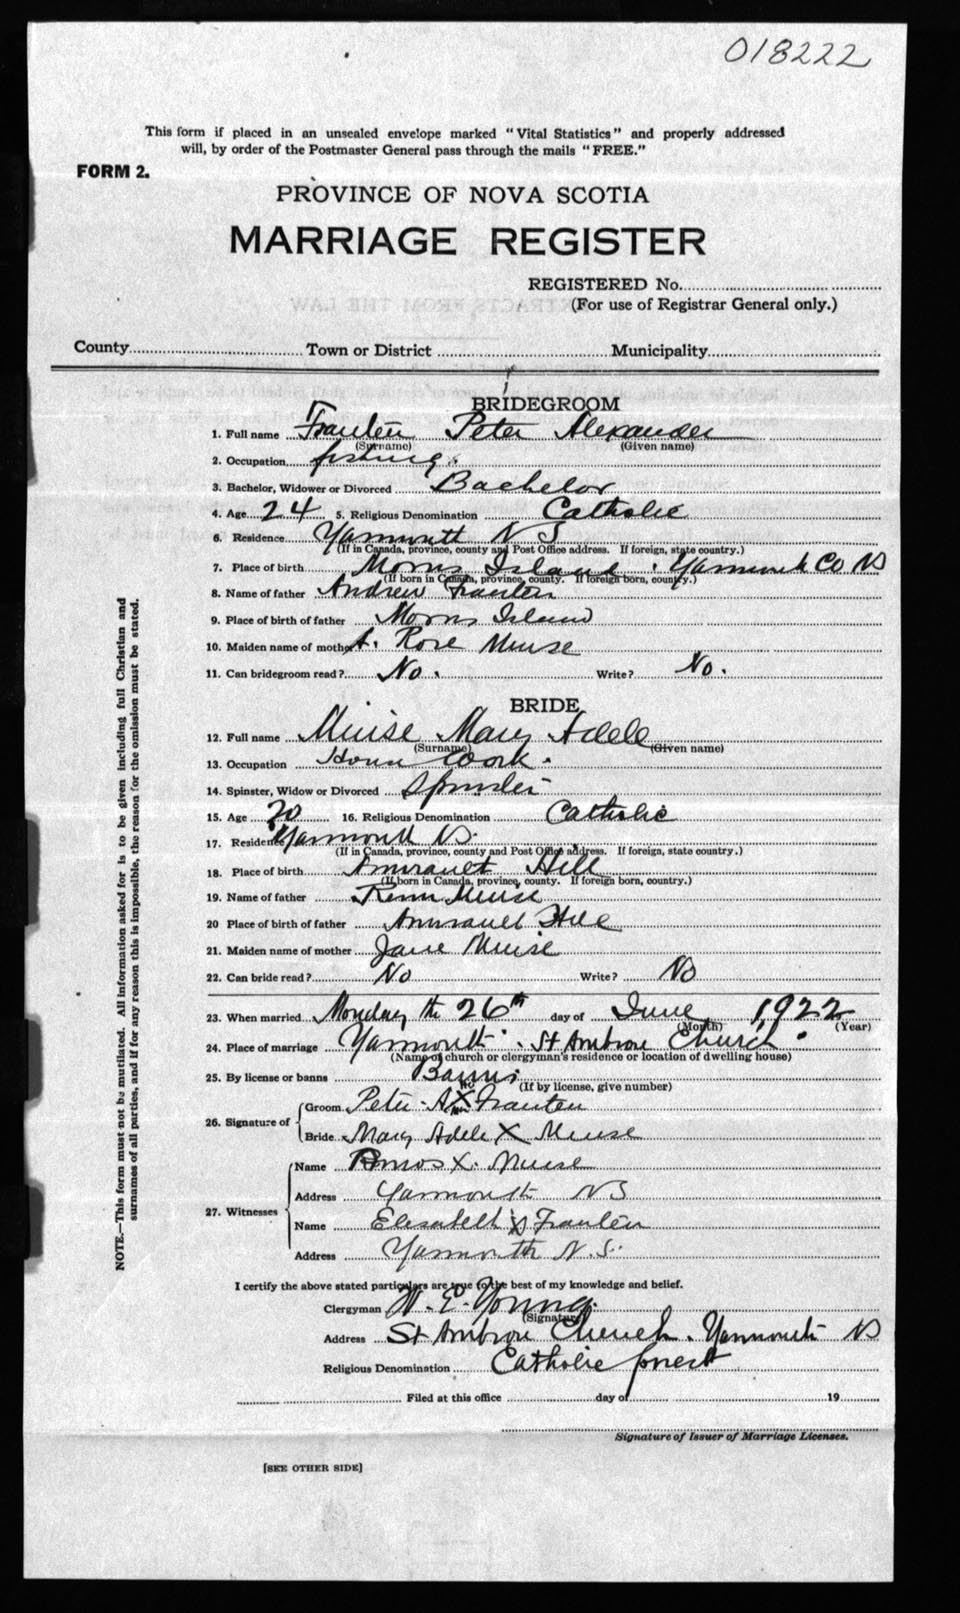 018222
This form if placed in an unsealed envelope marked "Vital Statistics" and properly addressed
will, by order of the Postmaster General pass through the mails "FREE."
FORM 2.
PROVINCE OF NOVA SCOTIA
MARRIAGE REGISTER
REGISTERED No.
(For use of Registrar General only.)
County Town or District Municipality
BRIDEGROOM
1. Full name Peter Alexander
(Surname) (Given name)
2. Occupation fishing.
3. Bachelor, Widower or Divorced Bachelor
4. Age 24 5. Religious Denomination Catholic
6. Residence Yarmouth N S
(If in Canada, province, county and Post Office address. If foreign, state country.)
7. Place of birth Morris Island . Yarmouth Co NS
(If born in Canada, province, county. If foreign born, country.)
8. Name of father Andrew
9. Place of birth of father Morris Island
10. Maiden name of mother A. Rose Muise
11. Can bridegroom read? No. Write? No.
BRIDE
12. Full name Muise Mary Adele
(Surname) (Given name)
13. Occupation House Work.
14. Spinster, Widow or Divorced Spinster
15. Age 20 16. Religious Denomination Catholic
17. Residence Yarmouth NS.
(If in Canada, province, county and Post Office address. If foreign, state country.)
18. Place of birth Amirault Hill
(If born in Canada, province, county. If foreign born, country.)
19. Name of father Muise
20 Place of birth of father Amirault Hill
21. Maiden name of mother Jane Muise
22. Can bride read? No Write? No
23. When married Monday the 26th day of June 1922
(Month) (Year)
24. Place of marriage Yarmouth. St Ambrose Church.
(Name of church or clergyman's residence or location of dwelling house)
25. By license or banns Banns
(If by license, give number)
26. Signature of Groom Peter A X
Bride Mary Adele X Muise
27. Witnesses Name Amos X. Muise
Address Yarmouth NS
Name Elesabeth X
Address Yarmouth N.S.
I certify the above stated particulars are true to the best of my knowledge and belief.
Clergyman W. E. Young.
(Signature)
Address St Ambrose Church. Yarmouth NS
Religious Denomination Catholic priest
Filed at this office day of 19
Signature of Issuer of Marriage Licenses.
[SEE OTHER SIDE]
NOTE.—This form must not be mutilated. All information asked for is to be given including full Christian and
surnames of all parties, and if for any reason this is impossible, the reason for the omission must be stated.